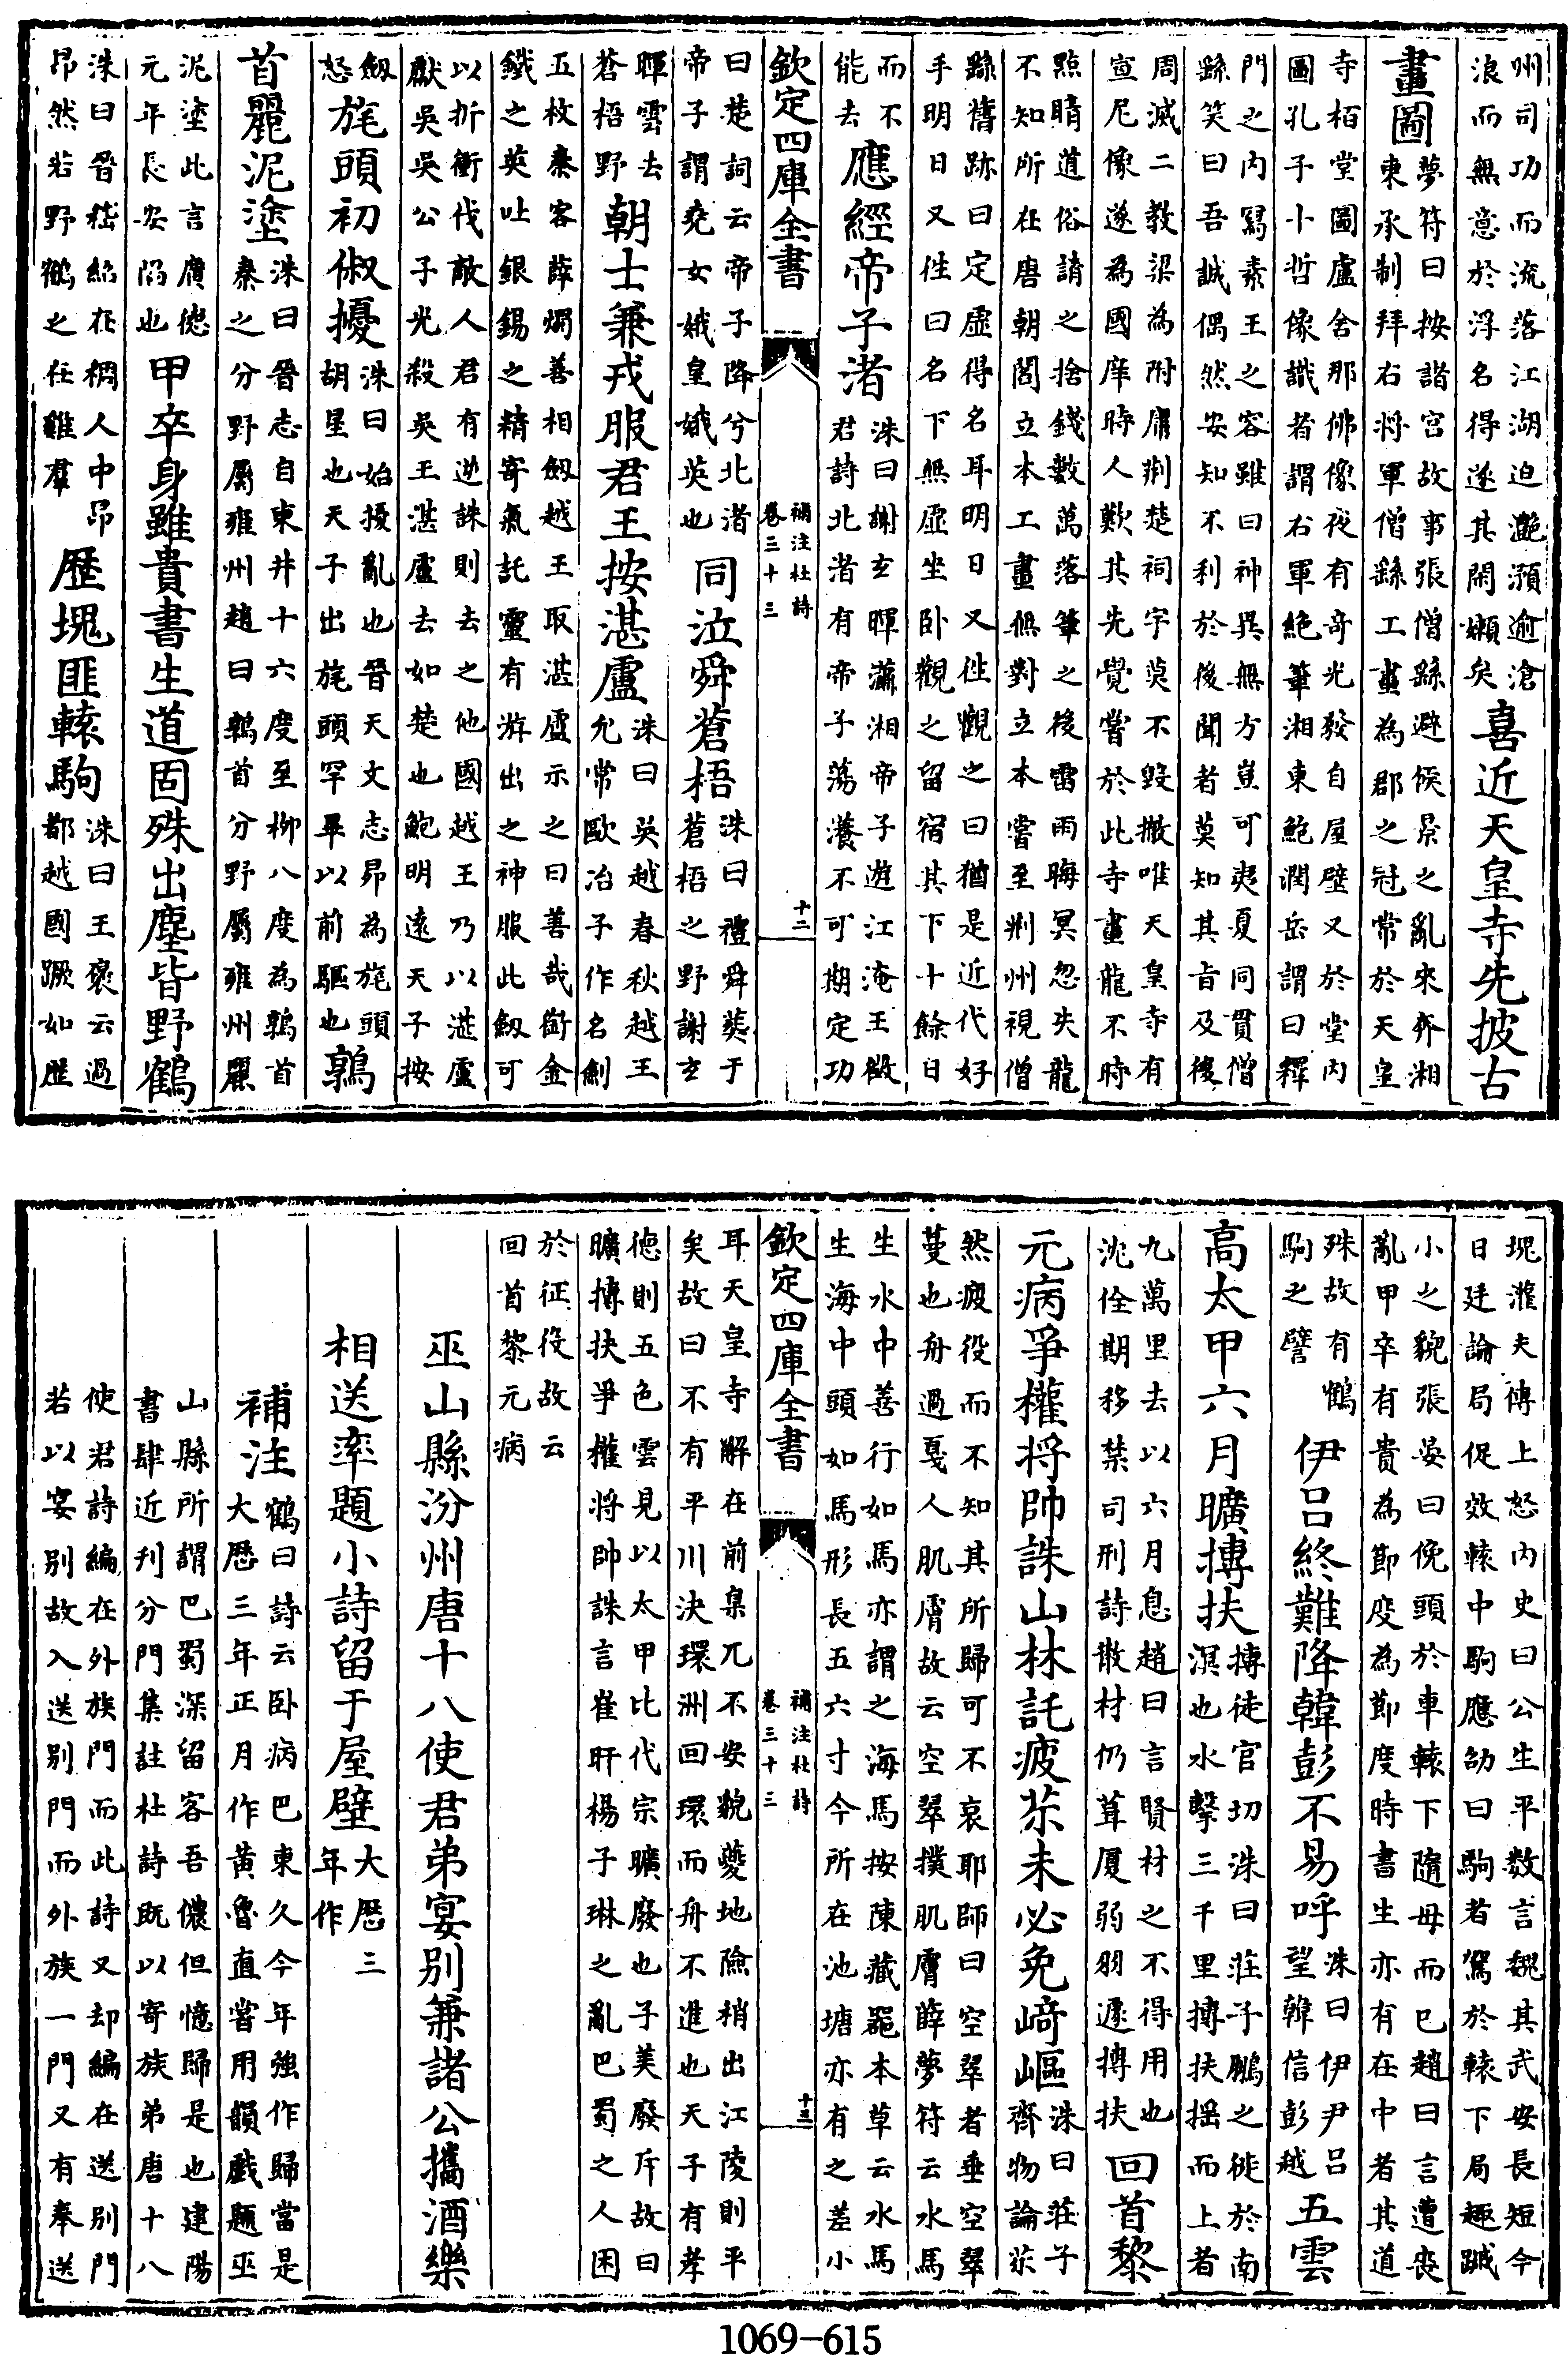 州司功而流落江湖迫灔澦逾滄
浪而無意於浮名得遂其閑嬾矣
喜近天皇寺先披古
畫圖
夢符曰按諸宮故事張僧繇避候景之亂來奔湘
東承制拜右将軍僧繇工畫為郡之冠常於天皇
寺栢堂圖盧舍那佛像夜有奇光發自屋壁又於堂内
圖孔子十哲像識者謂右軍絶筆湘東鮑潤岳謂曰釋
門之内寫素王之容雖曰神異無方豈可夷夏同貫僧
繇笑曰吾誠偶然安知不利於後聞者莫知其旨及後
周滅二教梁為附庸荆楚祠宇莫不毁撤唯天皇寺有
宣尼像遂為國庠時人歎其先覺嘗於此寺畫龍不時
點睛道俗請之捨錢數萬落筆之後雷雨晦冥忽失龍
不知所在唐朝閻立本工畫無對立本嘗至荆州視僧
繇舊跡曰定虚得名耳明日又徃觀之曰猶是近代好
手明日又徃曰名下無虚坐卧觀之留宿其下十餘日
而不
能去
應經帝子渚
洙曰謝玄暉瀟湘帝子遊江淹王徴
君詩北渚有帝子蕩瀁不可期定功
欽定四庫全書
補注杜詩
卷三十三
十二
曰楚詞云帝子降兮北渚
帝子謂堯女娥皇娥英也
同泣舜蒼梧
洙曰禮舜葬于
蒼梧之野謝玄
暉雲去
蒼梧野
朝士兼戎服君王按湛盧
洙曰吳越春秋越王
允常歐冶子作名劍
五枚秦客薛燭善相劔越王取湛盧示之曰善哉銜金
鐵之英吐銀錫之精寄氣託靈有游出之神服此劔可
以折衝伐敵人君有逆誅則去之他國越王乃以湛盧
獻吳吳公子光殺吳王湛盧去如楚也鮑明遠天子按
劔
怒
旄頭初俶擾
洙曰始擾亂也晉天文志昴為旄頭
胡星也天子出旄頭罕畢以前驅也
鶉
首麗泥塗
洙曰晉志自東井十六度至柳八度為鶉首
秦之分野屬雍州趙曰鶉首分野屬雍州麗
泥塗此言廣德
元年長安陷也
甲卒身雖貴書生道固殊出塵皆野鶴
洙曰晉嵇紹在稠人中昂
昂然若野鶴之在雞羣
歴塊匪轅駒
洙曰王褒云過
都越國蹶如歴
塊灌夫傳上怒内史曰公生平數言魏其武安長短今
日廷論局促效轅中駒應劭曰駒者駕於轅下局趣蹴
小之貌張晏曰俛頭於車轅下隨母而已趙曰言遭喪
亂甲卒有貴為節度為節度時書生亦有在中者其道
殊故有鶴
駒之譬
伊吕終難降韓彭不易呼
洙曰伊尹吕
望韓信彭越
五雲
高太甲六月曠摶扶
摶徒官切洙曰莊子鵬之徙於南
溟也水擊三千里摶扶揺而上者
九萬里去以六月息趙曰言賢材之不得用也
沈佺期移禁司刑詩散材仍葺厦弱羽遽摶扶
回首黎
元病爭權将帥誅山林託疲苶未必免崎嶇
洙曰莊子
齊物論苶
然疲役而不知其所歸可不哀耶師曰空翠者垂空翠
蔓也舟過戛人肌膚故云空翠撲肌膚薛夢符云水馬
生水中善行如馬亦謂之海馬按陳藏噐本草云水馬
生海中頭如馬形長五六寸今所在池塘亦有之差小
欽定四庫全書
補注杜詩
卷三十三
十三
耳天皇寺解在前臬兀不安貌夔地險稍出江陵則平
矣故曰不有平川決環洲回環而舟不進也天子有孝
德則五色雲見以太甲比代宗曠廢也子美廢斥故曰
曠摶扶爭權将帥誅言崔旰楊子琳之亂巴蜀之人困
於征役故云
回首黎元病
巫山縣汾州唐十八使君弟宴别兼諸公攜酒樂
相送率題小詩留于屋壁
大歴三
年作
補注
鶴曰詩云卧病巴東久今年強作歸當是
大歴三年正月作黄魯直嘗用韻戲題巫
山縣所謂巴蜀深留客吾儂但憶歸是也建陽
書肆近刋分門集註杜詩既以寄族弟唐十八
使君詩編在外族門而此詩又却編在送别門
若以宴别故入送别門而外族一門又有奉送
1069-615